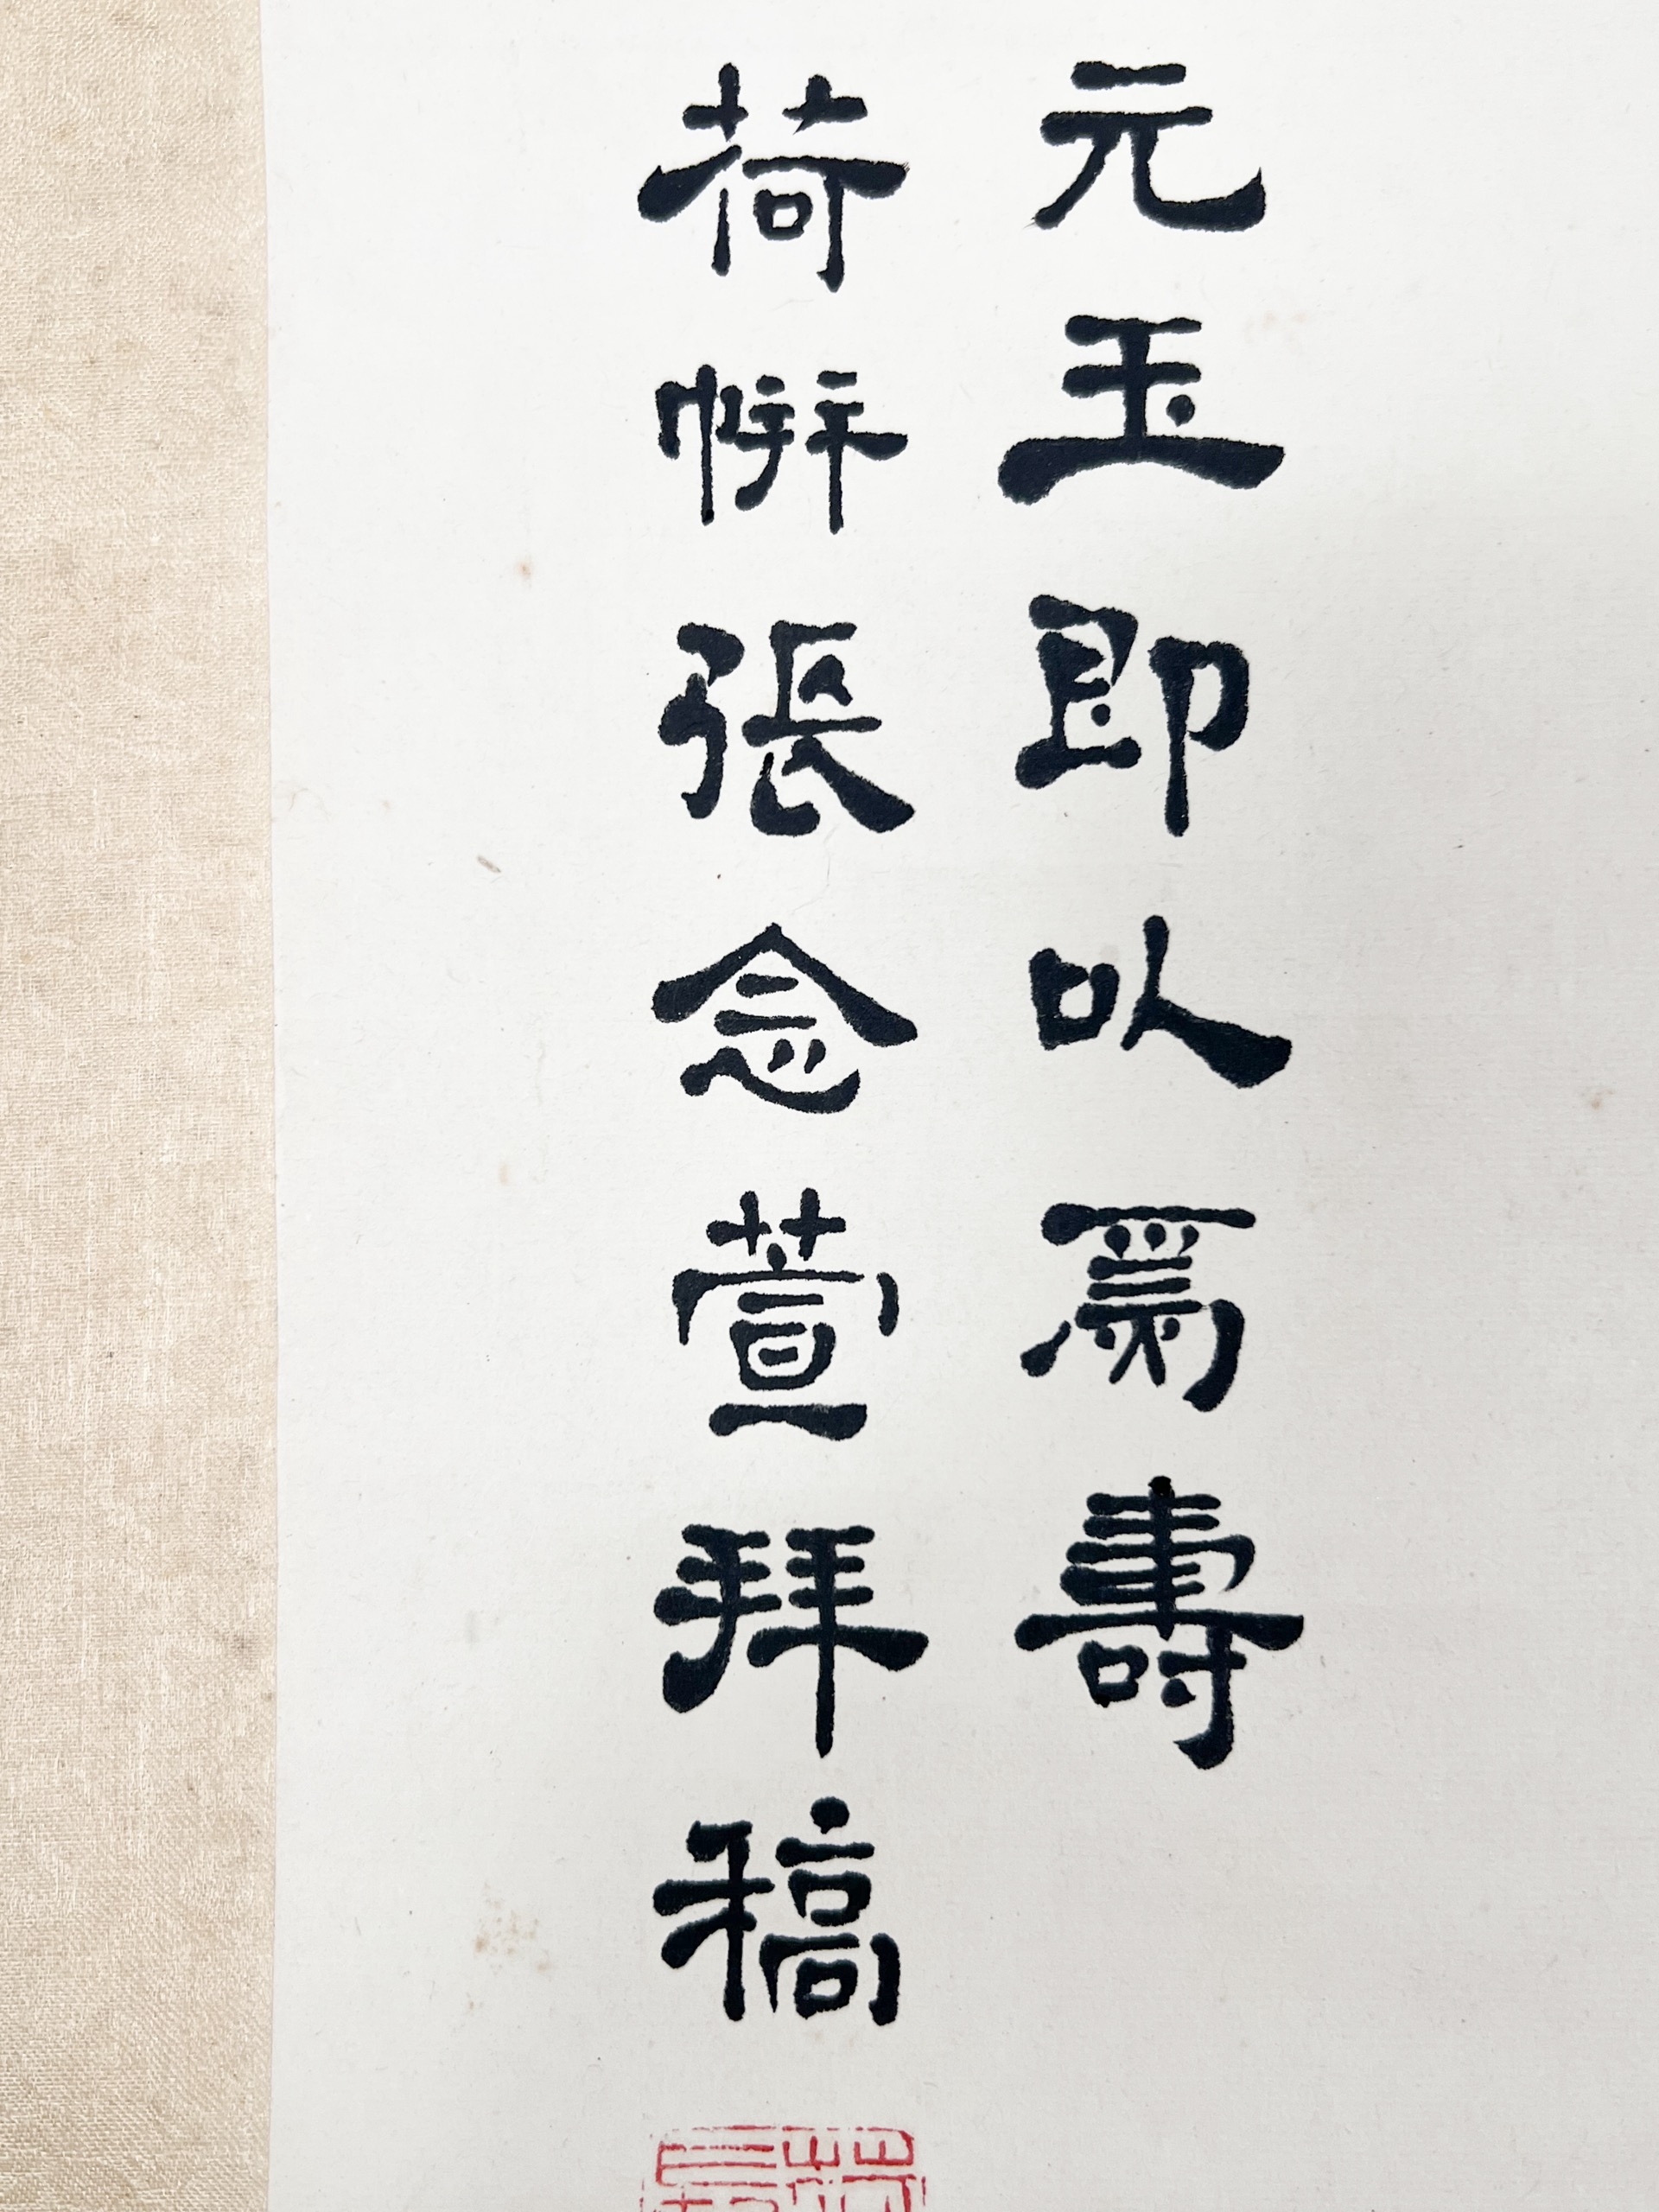 元玉即以爲壽
荷帲張念萱拜稿